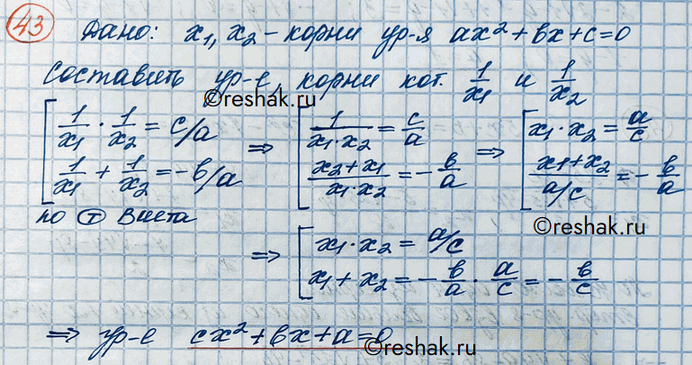 43 Дано: x₁, x₂ - корни ур-я ax²+bx+c=0
Составить ур-е, корни кот. 1/x₁ и 1/x₂
©reshak.ru
[ 1/x₁ · 1/x₂ = c/a ⇒ [ 1/(x₁·x₂) = c/a ⇒ [ x₁·x₂ = a/c
1/x₁ + 1/x₂ = -b/a (x₂+x₁)/(x₁·x₂) = -b/a (x₁+x₂)/(a/c) = -b/a
по Ⓣ Виета
©reshak.ru
⇒ [ x₁·x₂ = a/c
x₁+x₂ = -b/a · a/c = -b/c
⇒ ур-е cx²+bx+a=0
©reshak.ru